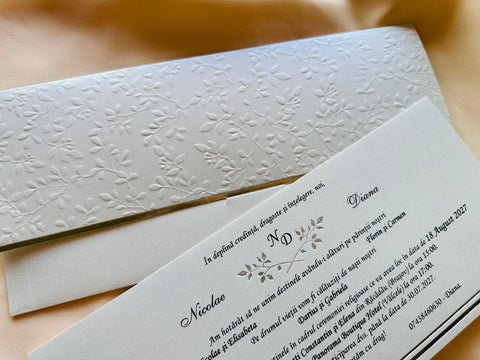 În deplină credință, dragoste și înțelegere, noi,
Nicolae
ND
Diana
Am hotărât să ne unim destinele avându-i alături pe părinții noștri
și Elisabeta
Florin și Carmen
Pe drumul vieții vom fi călăuziți de nașii noștri
Darius și Gabriela
destinele în cadrul ceremoniei religioase ce va avea loc în data de 18 August 2027
Constantin și Elena din (Brașov) la ora 15:00.
Boutique Hotel (Vâlcele) la ora 17:00.
dvs. până la data de 30.07.2027.
cu drag!
07438460630 - Diana.